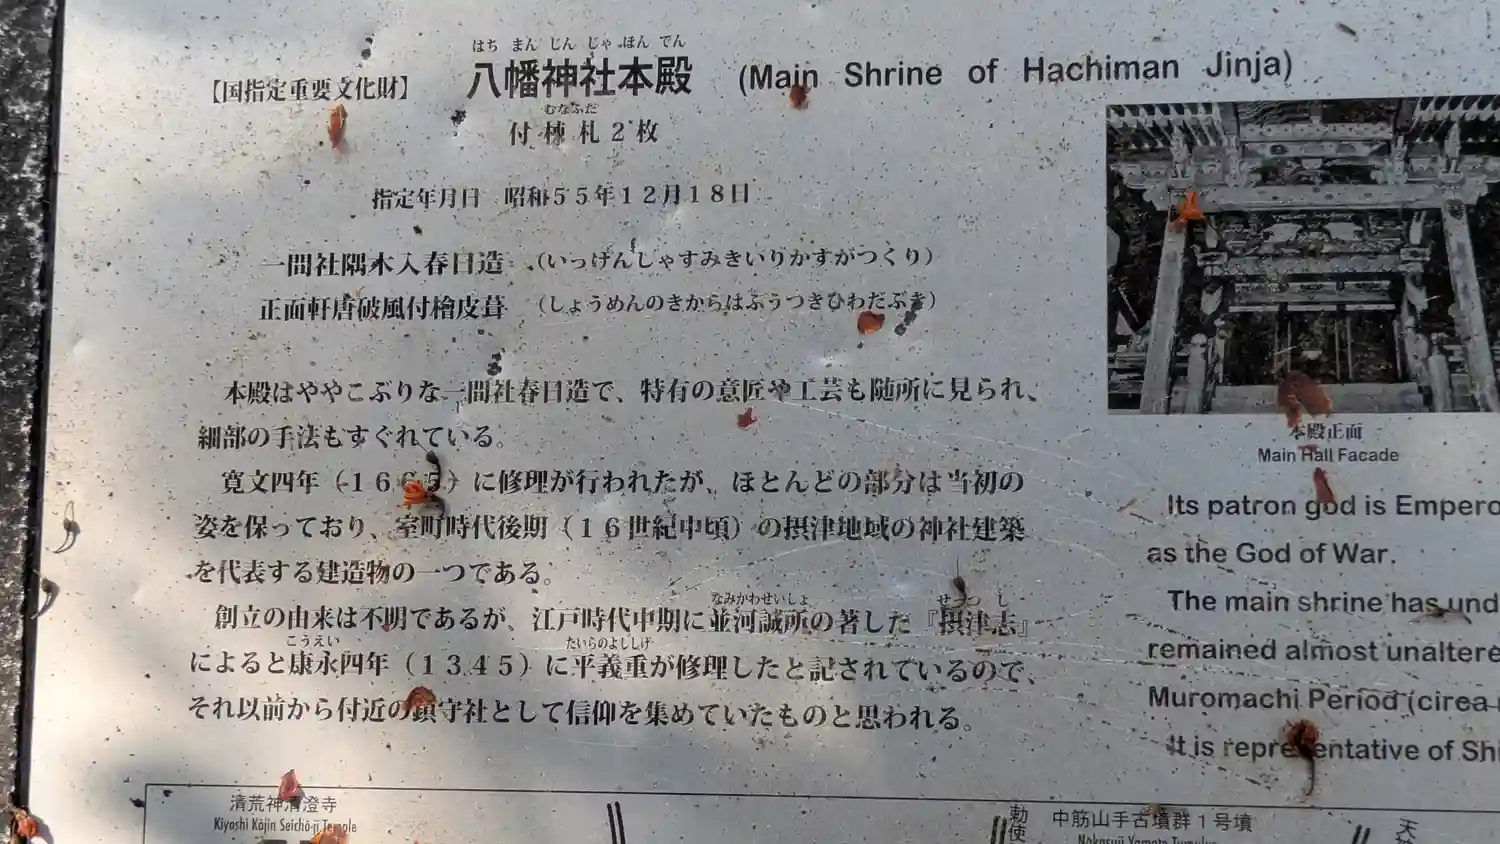 はちまんじんじゃほんでん
【国指定重要文化財】 八幡神社本殿 (Main Shrine of Hachiman Jinja)
むなふだ
付棟札２枚
指定年月日 昭和５５年１２月１８日
一間社隅木入春日造 （いっけんしゃすみきいりかすがつくり）
正面軒唐破風付檜皮葺 （しょうめんのきからはふうつきひわだぶき）
本殿はややこぶりな一間社春日造で、特有の意匠や工芸も随所に見られ、
細部の手法もすぐれている。
寛文四年（１６６５）に修理が行われたが、ほとんどの部分は当初の
姿を保っており、室町時代後期（１６世紀中頃）の摂津地域の神社建築
を代表する建造物の一つである。
なみかわせいしょ せっつし
創立の由来は不明であるが、江戸時代中期に並河誠所の著した『摂津志』
こうえい たいらのよししげ
によると康永四年（１３４５）に平義重が修理したと記されているので、
それ以前から付近の鎮守社として信仰を集めていたものと思われる。
本殿正面
Main Hall Facade
Its patron god is Empero
as the God of War.
The main shrine has und
remained almost unaltere
Muromachi Period (cirea
It is representative of Shi
清荒神清澄寺
Kiyoshi Kōjin Seichō-ji Temple
勅使
中筋山手古墳群１号墳
天